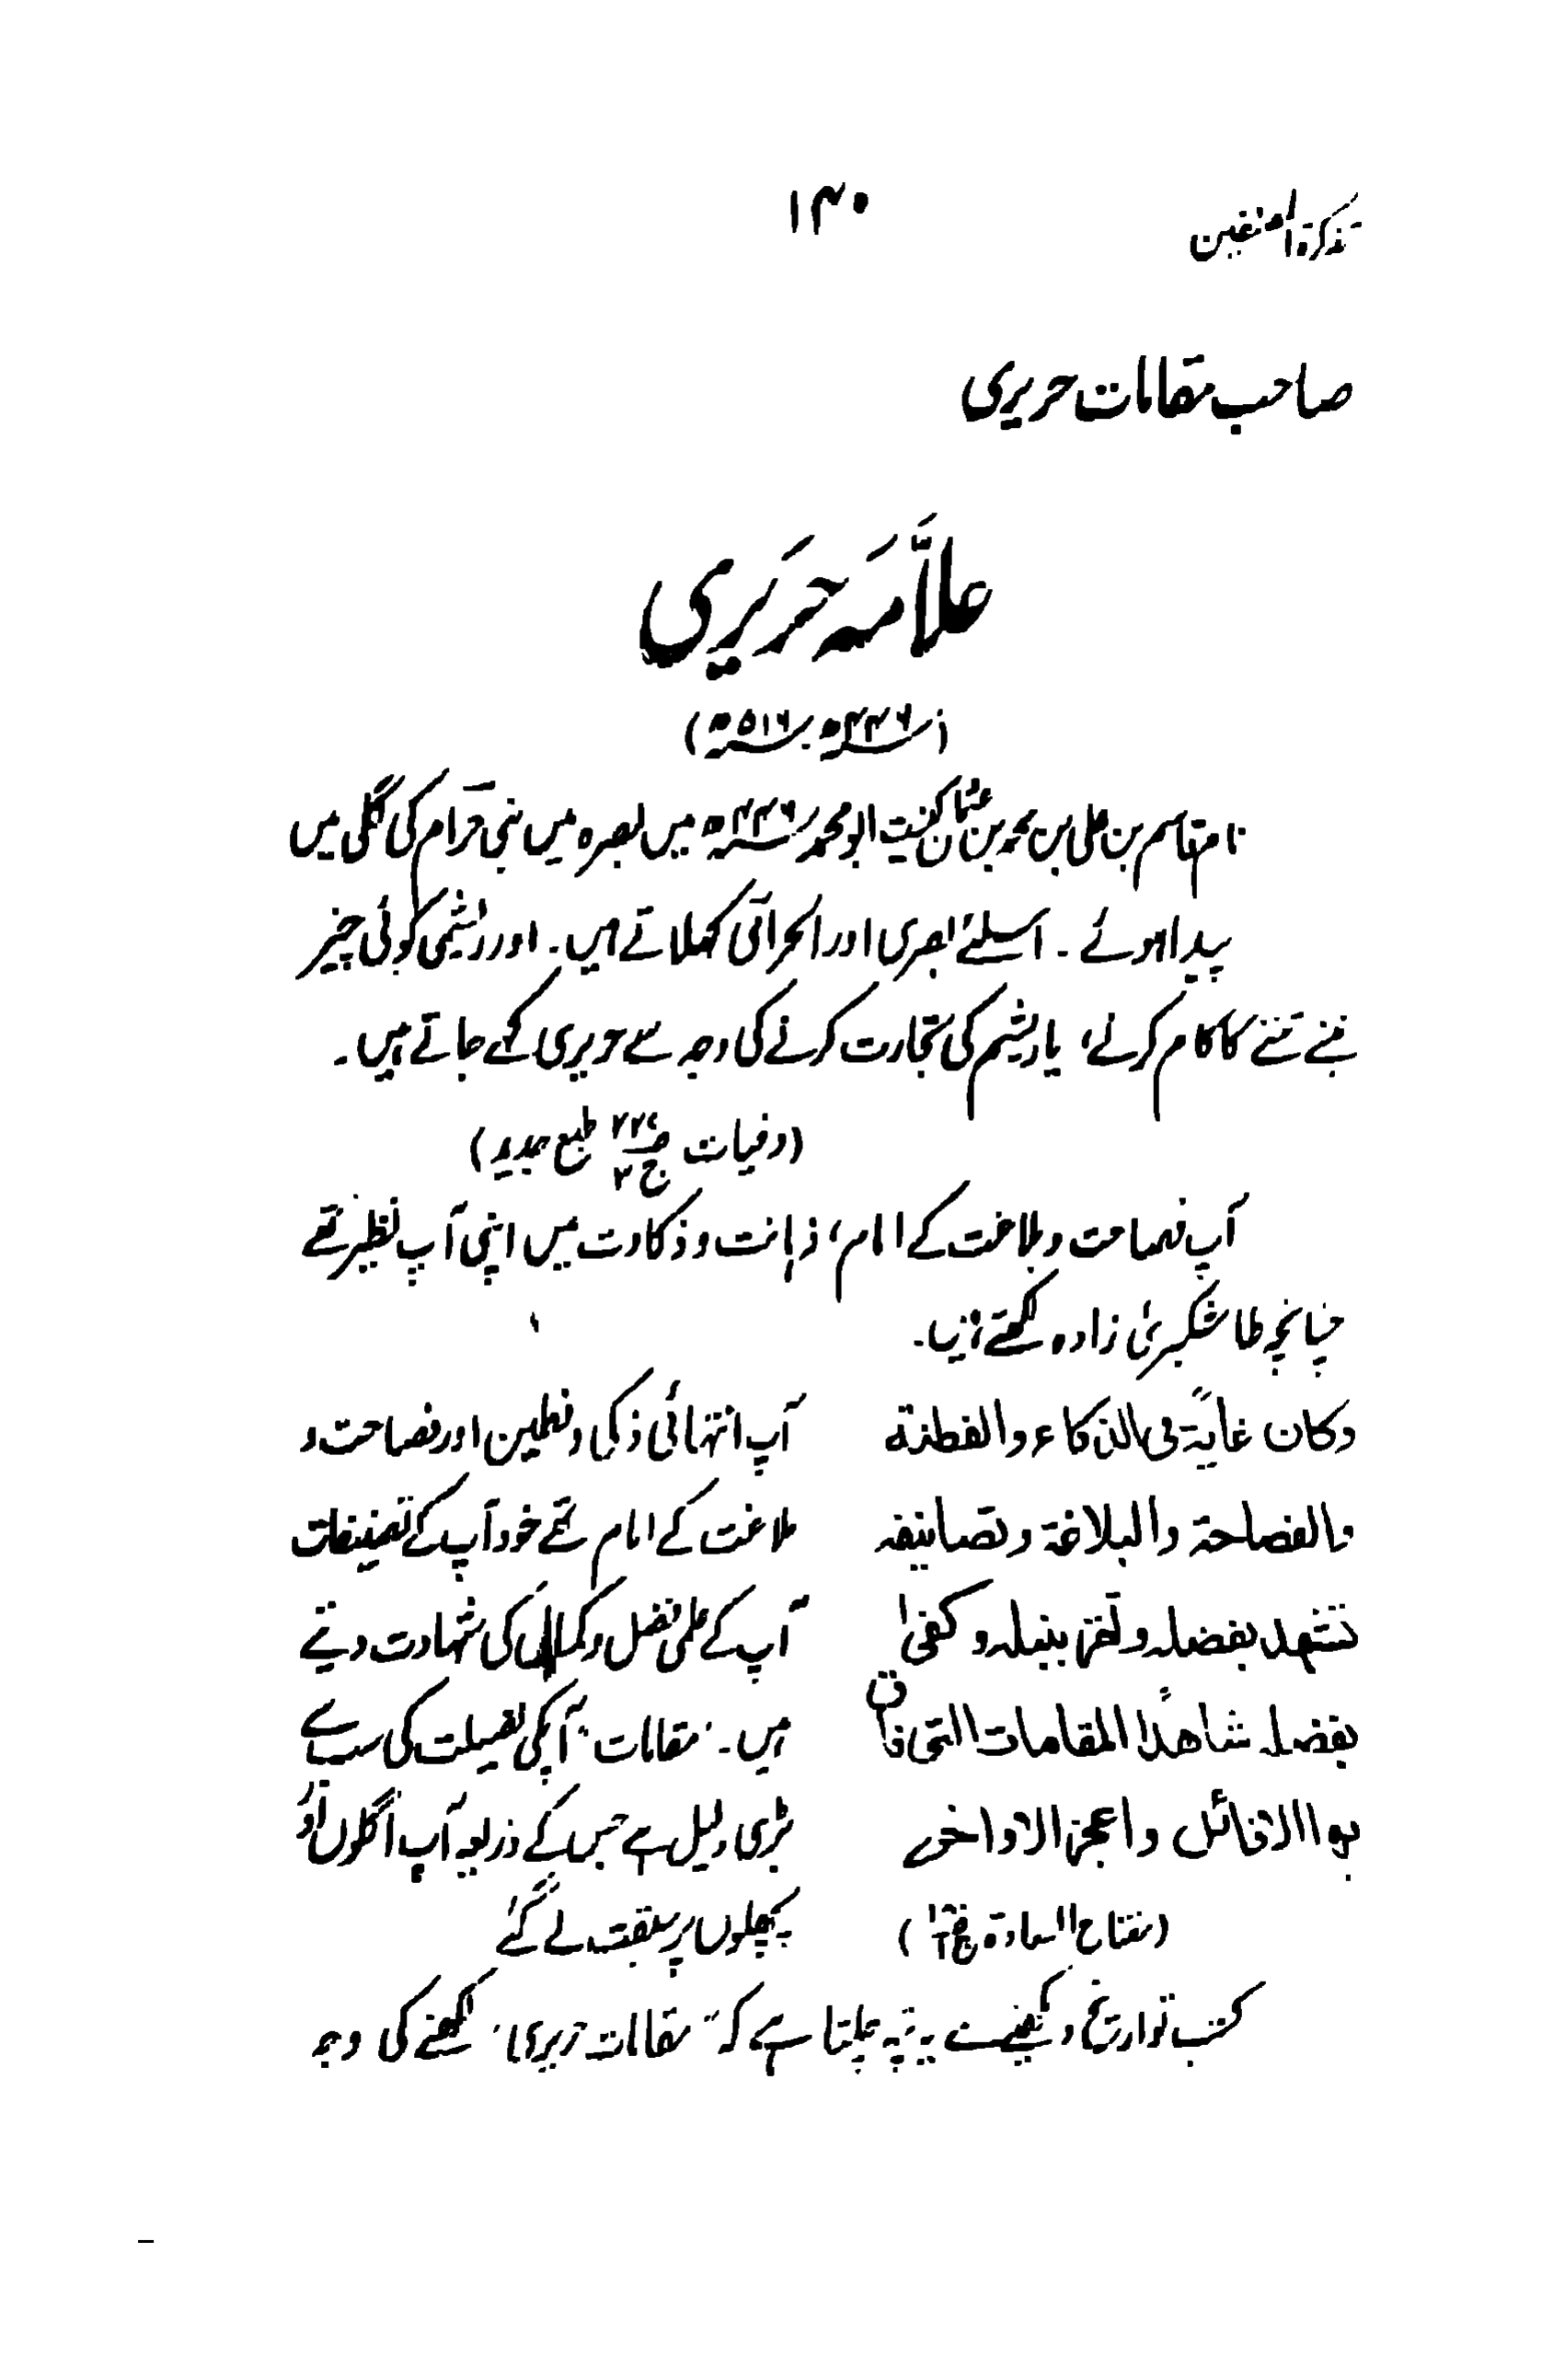 تذکرۃ المصنفین
۱۴۰
صاحب مقامات حریری
علاَّمَہ حَرَیری
(از ۴۴۶ھ ۵۱۶ھ)
نام قاسم بن علی بن محمد بن عثمان کنیت ابو محمد ۴۴۶ھ میں بصرہ میں بنی حرام کی گلی میں
پیدا ہوئے ۔ اسلئے بصری اور الحرامی کہلاتے ہیں۔ اور ریشمی کوئی چیز
بننے تننے کا کام کرنے، یا ریشم کی تجارت کرنے کی وجہ سے حریری کہے جاتے ہیں۔
(وفیات ج۴ طبع جدید)
آپ فصاحت و بلاغت کے امام، ذہانت و ذکاوت میں اپنی آپ نظیر تھے
چنانچہ طاشکبریٰ زادہ لکھتے ہیں۔
وکان غایۃً فی الذکاء والفطنۃ
والفصاحۃ والبلاغۃ وتصانیفہ
تشھد بفضلہ وتقر بنبلہ وکفیٰ
بفضلہ شاھدًا المقامات التی فاق
بہا الاوائل واعجز الاواخر
(مفتاح السعادۃ ج۱)
آپ انتہائی ذکی و فطین اور فصاحت و
بلاغت کے امام تھے خود آپ کے تصنیفات
آپ کے علمی فضل و کمال کی شہادت دیتے
ہیں۔ ’مقامات‘ آپکی فضیلت کی سب سے
بڑی دلیل ہے جس کے ذریعہ آپ اگلوں اور
پچھلوں پر سبقت لے گئے
کتب تواریخ دیکھنے سے یہ پتہ چلتا ہے کہ "مقامات حریری" لکھنے کی وجہ